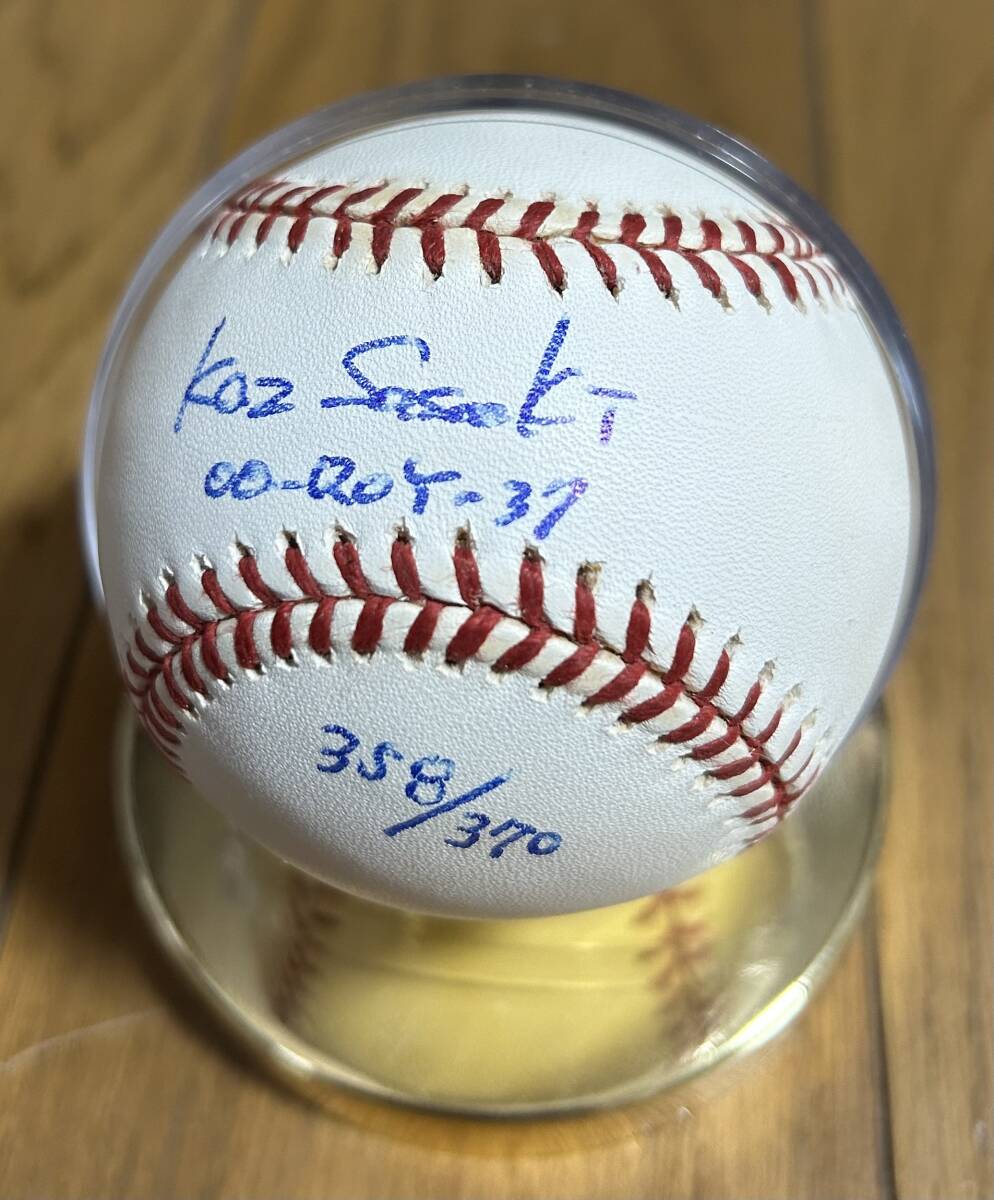 Koz Sasaki
00-ROY-37
358/370